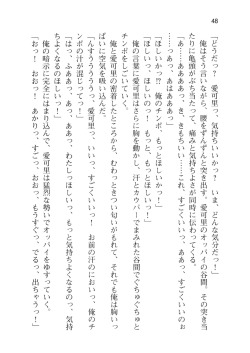 48
「どうだっ？　愛可里っ、気持ちいいかっ！　いま、どんな気分だっ！」
　俺はそう言いながら、腰をずんずんと突き出す。愛可里のオッパイの谷間、その突き当
たりに亀頭がぶち当たって、痛みと気持ちよさが同時に伝わってくる。
「あっ……あああっ、きもちいい……これ、すごくいい……っ、ああぁっ、すごいいいのぉ
ぉっ！　あっ、あはぁぁっ」
「ほしいかっ!?　俺のチンポ、もっとほしいかっ！」
「ほしいっ、ほしいのっ！　もっと、もっとほしいっ！」
　俺の言葉に愛可里はさらに胸を動かし、汗とカウパーでまみれた谷間でぐちゅぐちゅと
チンポをしごいていく。
　俺と愛可里の密着したところから、むわっときつい匂いがもれて、それでも俺は胸いっ
ぱいに空気を吸い込んだ。
「んすぅぅぅぅっ、愛可里っ、いいっ、すごくいいっ！　お前の汗のにおいっ、俺のチ
ンポの汗が混じってっ！」
「はっ、ふあああっ、あっ、わたしっほしいっ、もっと気持ちよくなるのっっ、気持
ちよくなるのほしいっ！」
　俺の暗示に完全にはまり込んで、愛可里は猛烈な勢いでオッパイをゆすっていく。
「おおっ！　おおっ、あかりっ、すごっ、おおっ、もうすぐっ、でるっ、出ちゃうっ！」